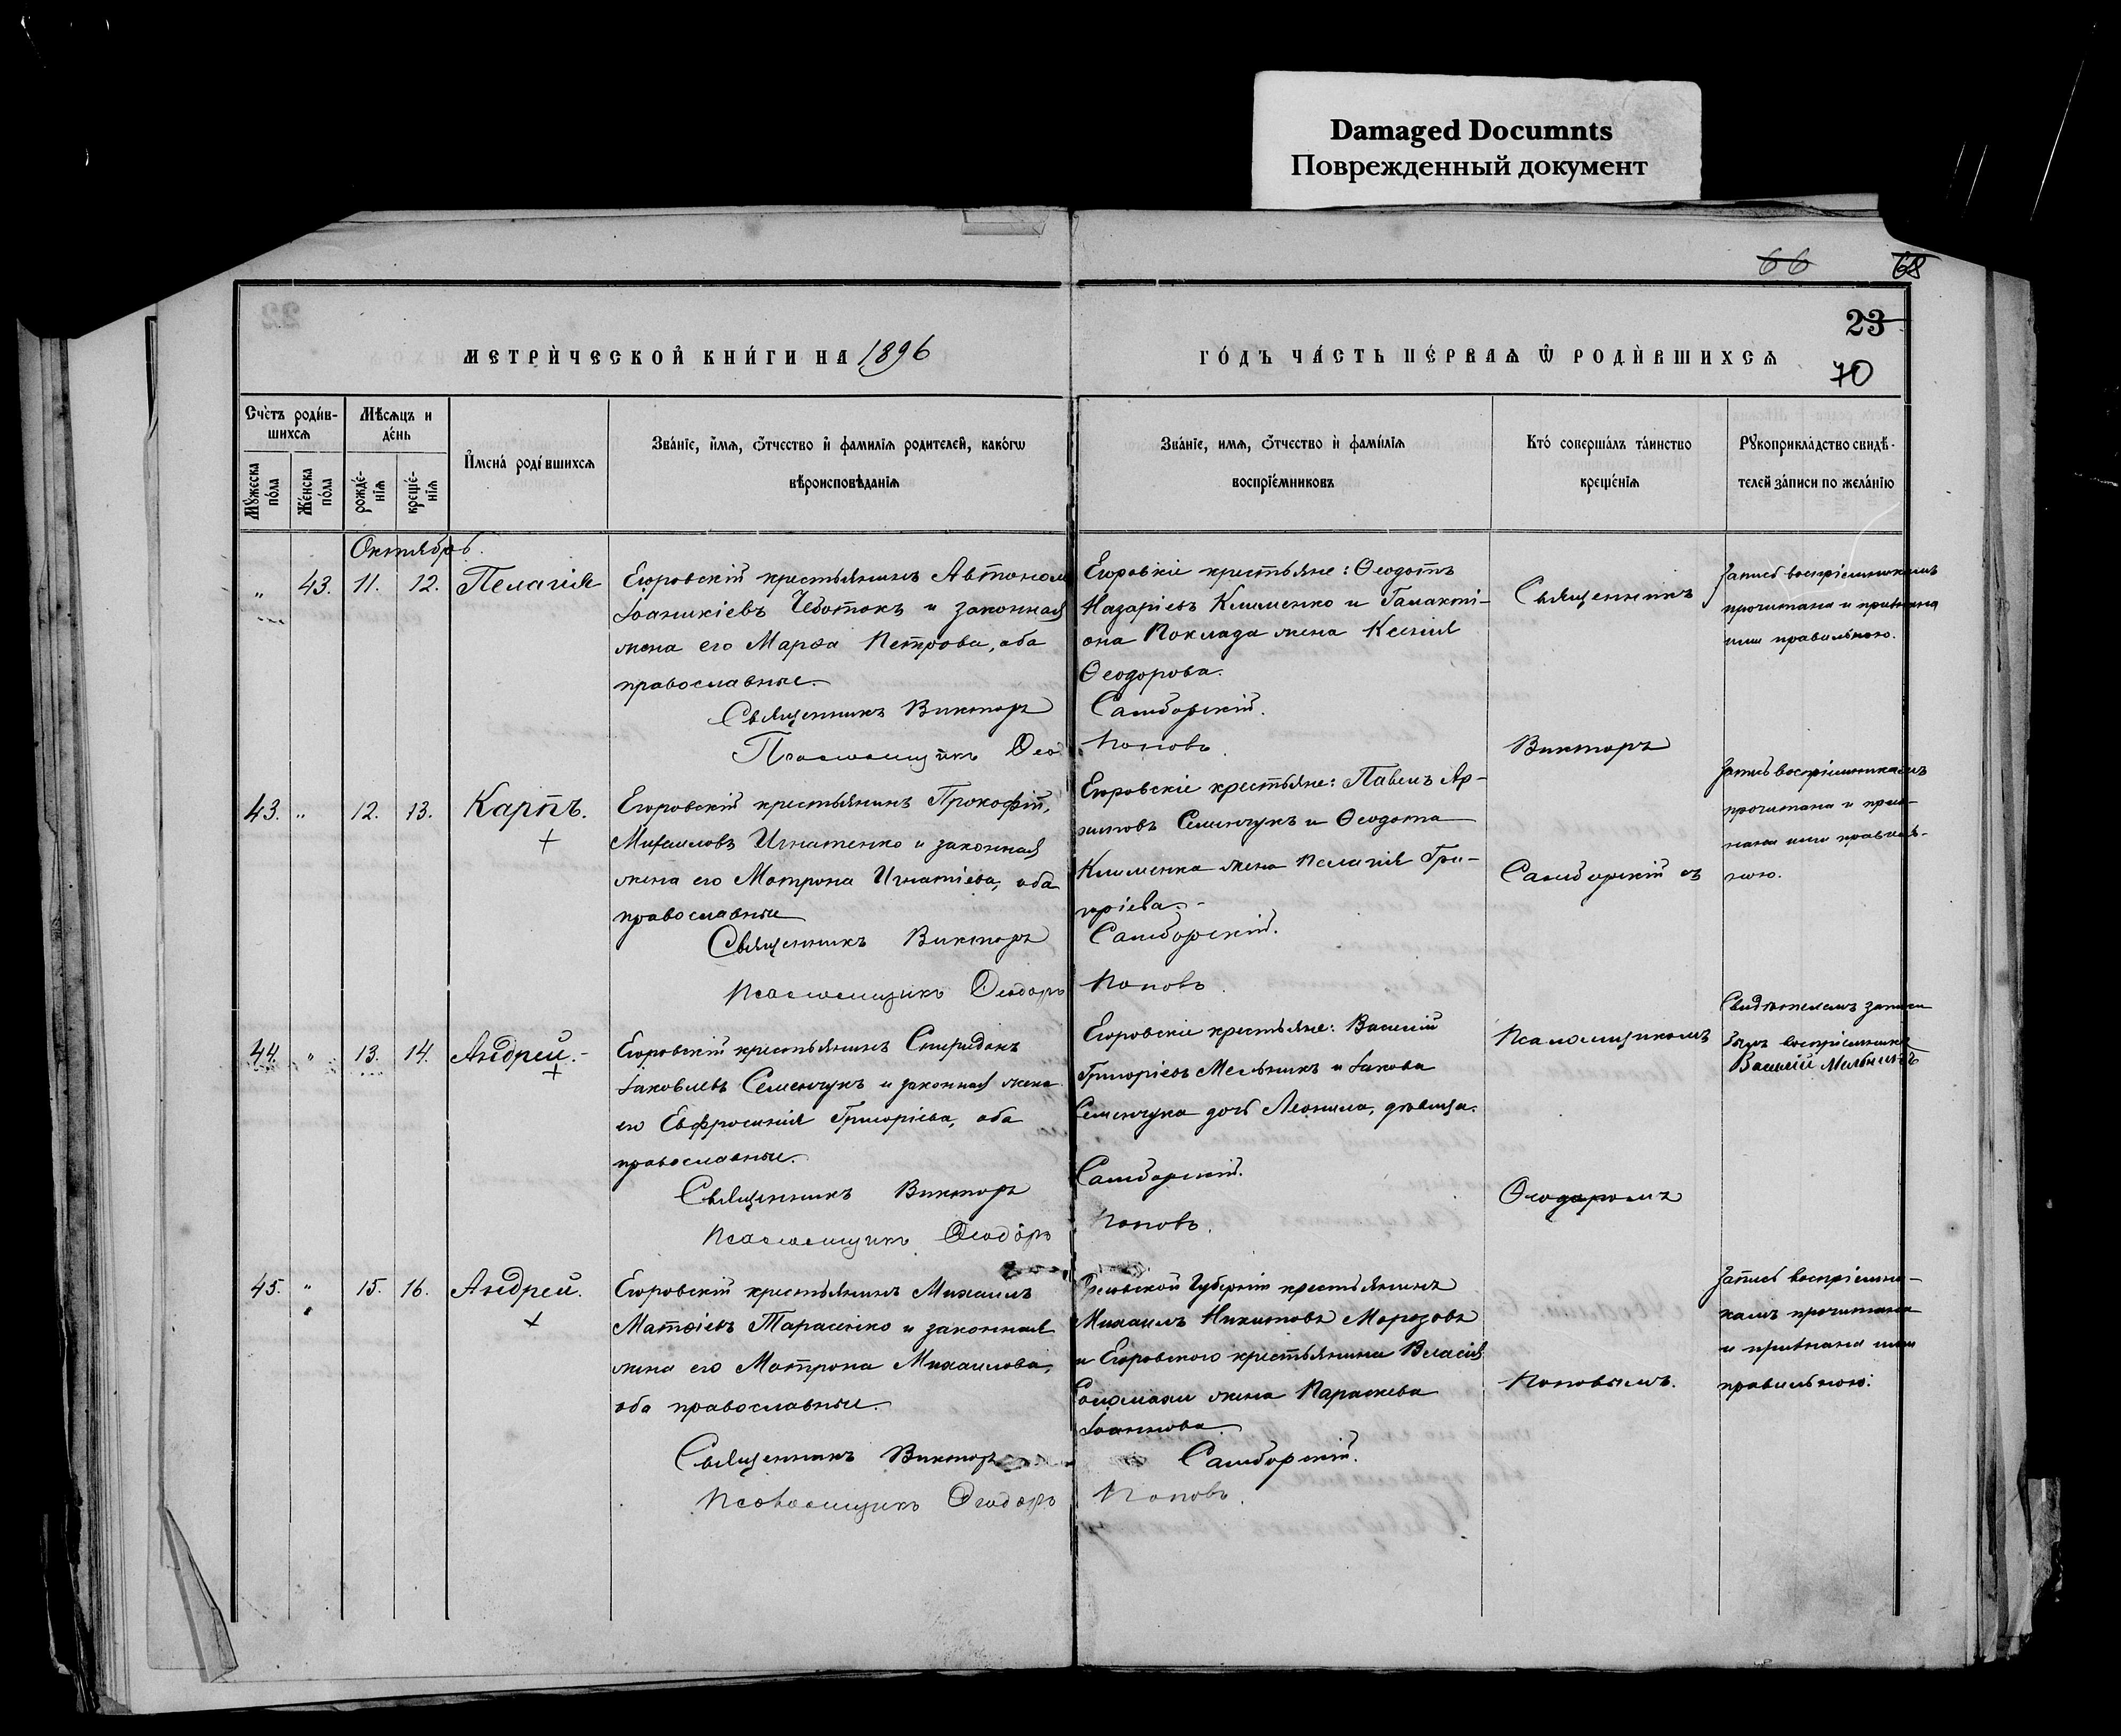 Damaged Documnts
Поврежденный документ
66
68
23
70
МЕТРИ́ЧЕСКОЙ КНИ́ГИ НА 1896
ГО́ДЪ ЧА́СТЬ ПЕ́РВАѦ Ѿ РОДИ́ВШИХСѦ
Сче́тъ роди́в-
шихсѧ
Мѣ́сѧцъ и
де́нь
Мꙋ́жеска
по́ла
Же́нска
по́ла
рожде́-
нїѧ
креще́-
нїѧ
И҆мена́ роди́вшихсѧ
Зва́нїе, и҆́мѧ, ѻ҆́тчество и҆ фами́лїѧ родителей, како́гѡ
вѣроисповѣ́данїѧ
Зва́нїе, имѧ, ѻ҆́тчество и҆ фами́лїѧ
воспрїе́мниковъ
Кто́ соверша́лъ та́инство
креще́нїѧ
Рꙋкоприкла́дство свидѣ́-
телей за́писи по жела́нїю
Октябрь.
" 43. 11. 12. Пелагія
Егоровскій крестьянинъ Автоном
Іоаникіевъ Чеботокъ и законная
жена его Марѳа Петрова, оба
православные.
Священникъ Викторъ
Псаломщикъ Ѳеод
Егоровскіе крестьяне: Ѳеодотъ
Назаріевъ Клименко и Галакті-
она Поклада жена Ксенія
Ѳеодорова.
Самборскій.
Поповъ.
Священникъ
Запись воспріемникамъ
прочитана и признана
ими правильною.
43. " 12. 13. Карпъ.
Егоровскій крестьянинъ Прокофій
Михаиловъ Игнатенко и законная
жена его Матрона Игнатіева, оба
православные
Священникъ Викторъ
Псаломщикъ Ѳеодоръ
Егоровскіе крестьяне: Павелъ Ар-
Семенчукъ и Ѳеодота
Клименка жена Пелагія Гри-
горіева.-
Самборскій.
Поповъ.
Викторъ
Самборскій съ
Запись воспріемникамъ
прочитана и приз-
нана ими правиль-
ною.
44. " 13. 14. Андрей.-
Егоровскій крестьянинъ Спиридонъ
Іаковлевъ Семенчукъ и законная жена
его Евфросинія Григоріева, оба
православные.
Священникъ Викторъ
Псаломщикъ Ѳеодоръ
Егоровскіе крестьяне: Василій
Григоріевъ Мельникъ и Іакова
Семенчука дочь Леонила, дѣвица.
Самборскій.
Поповъ.
Псаломщикомъ
Ѳеодоромъ
Свидѣтелемъ записи
былъ воспріемникъ
Василій Мельникъ
45. " 15. 16. Андрей.
Егоровскій крестьянинъ Михаилъ
Матѳіевъ Тарасенко и законная
жена его Матрона Михаилова,
оба православные.
Священникъ Викторъ
Псаломщикъ Ѳеодоръ
Губерніи крестьянинъ
Михаилъ Никитовъ Морозовъ
и Егоровского крестьянина Власія
жена Параскева
Іоаннова.
Самборскій.
Поповъ.
Поповымъ.
Запись воспріемни-
камъ прочитана
и признана ими
правильною.